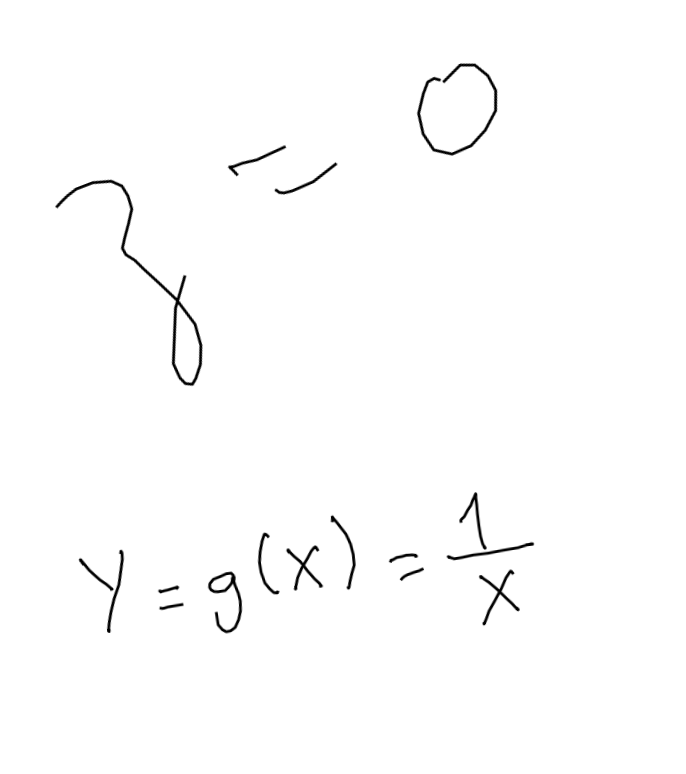 = 0
Y = g(X) = 1/X